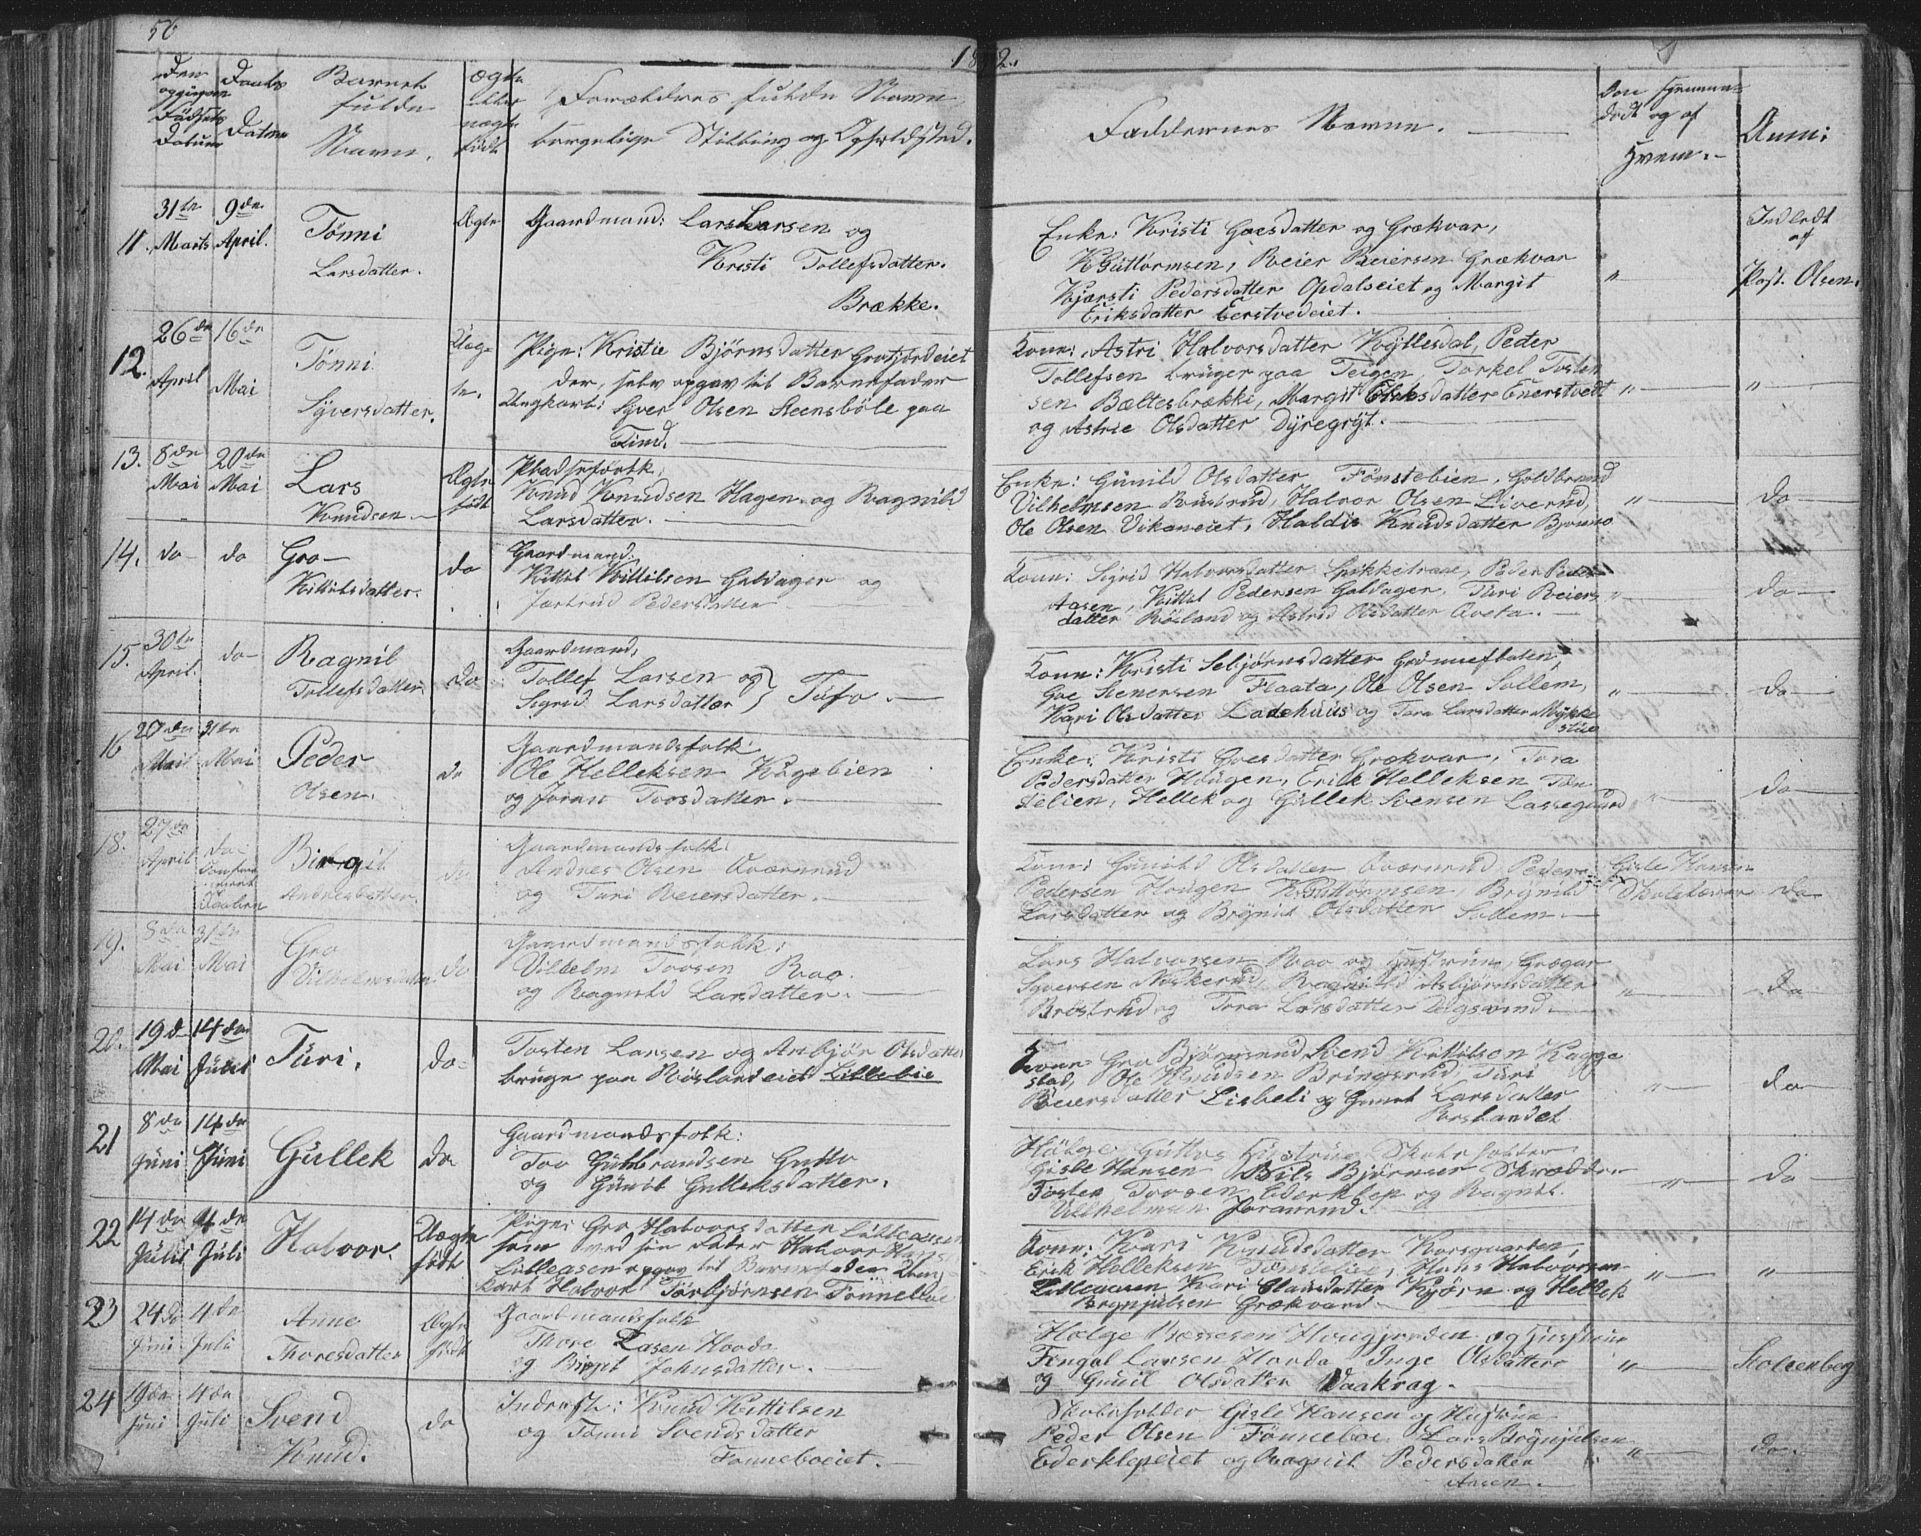 56
18 2.
Den opgivne Fødsels Datum
Daabs Datum
Barnets fulde Navn.
Ægte eller uægte født
Forældres fulde Navn borgelige Stilling og Opholdsted.
Faddernes Navne.
Om hjemmedøbt og af Hvem.
Anm:
11. 31te Marts 9de April. Tønni Larsdatter. Ægte Gaardmand: Lars Larsen og
Kristi Tollefsdatter.
Brække.
Enke: Kristi Goesdatter og Grækvar,
K Guttormsen, Reier Reiersen Grækvar
Kjersti Pedersdatter Opdalseiet og Margit
Eriksdatter Eerstvedeiet.
"
Indledt af Past. Olsen.
12. 26de April 16de Mai Tønni Syversdatter. Uægte. Pige: Kristie Bjørnsdatter Grosfjordeiet
der, selv opgav til Barnefader
Ungkarl: Syver Olsen Steensböle paa
Tind.
Kone: Astri Halvorsdatter Kyllesdal, Peder
Tollefsen bruger paa Teigen, Torkel Tosten
sen Bæltesbrækki, Margit Eriksdatter Enerstvedt
og Astrie Olsdatter Dyregryt.
" "
13. 8de Mai 20de Mai Lars Knudsen Ægte født Pladsefolk,
Knud Knudsen Hagen og Ragnild
Larsdatter.
Enke: Gunild Olsdatter Fönstebien, Goldbrand
Vilhelmsen Rustrud, Halvor Olsen Liverud,
Ole Olsen Vikaneiet, Haldis Knudsdatter Bjonno
" Do
14. do do Gro Kittilsdatter. do Gaardmand:
Kittil Kittilsen Galdager og
Jørtrud Pedersdatter
Kone: Sigrid Halvorsdatter Pede
Aasen, Kittil Pedersen Galdager, Turi Reiers
datter Rösland og Astrid Olsdatter Aveta.
" do
15. 30te April. do Ragnil Tollefsdatter do Gaardmand,
Tollef Larsen og
Sigrid Larsdatter } Tufo.
Kone: Kristi Sebjørnsdatter
Goe Stenersen Flaata, Ole Olsen Sollem,
Kari Olsdatter Ladehuus og Tora Larsdatter Mykke
stue
" do
16 20de Mai 31te Mai Peder Olsen. do Gaardmandsfolk:
Ole Helleksen Kagebien
og Joran Toosdatter.
Enke: Kristi Goesdatter Grækvar, Tora
Pedersdatter Hougen, Erik Helleksen Tøn
lebien, Hellek og Gullek Svensen Lassegaard
" do
18. 27de April do Confirmeret Daaben Birgit Andreasdatter. do Gaardmandsfolk:
Andres Olsen Qværnrud
og Turi Reiersdatter.
Kone: Gunild Olsdatter Qværnrud, Peder
Pedersen Hougen K Guttormsen, Brynild
Larsdatter og Brynild Olsdatter Sollem.
Gisle Hansen Skolelærer
do
19. 8de Mai 31te Mai Gro Vilhelmsdatter do Gaardmandsfolk:
Vilhelm Toosen Raa
og Ragnild Larsdatter.
Lars Halvorsen Raa og Hustrue, Grægar
Syversen Niskerud, Ragnild Asbjørnsdatter
Brøstrud og Tora Larsdatter
" Do
20. 19de Mai 14de Juni Turi. do Tosten Larsen og Astbjør Olsdatter
bruge paa Röslandeiet Lillebie
Kone Gro Bjørnsrud, Svend Kittilsen Kagge
stad, Ole Knudsen Bringsrud, Turi
Reiersdatter Lisbeli og Gunil Larsdatter
Roslandet
" do
21 8de Juni 14de Juni Gullek do Gaardmandsfolk:
Too Gulbrandsen Gutto
og Gunil Gulleksdatter.
Hölge Guttos Hustrue, Skoleholder
Gisle Hansen Nils Bjørnsen Skrædder
Tosten Toosen Ederklep og Ragnil
Vilhelmsen Joranrud.
" do
22 14de Juni 4de Juli Halvor. Uægte født Pige: Gro Halvorsdatter Lilleaasen
som med sin Fader Halvor Hans
Lilleaasen opgav til Barnefader Ung
karl Halvor Törbjörnsen Tönneboe
Kone: Kari Knudsdatter Korsgaarden,
Erik Helleksen Tönslebie, Hans Halvorsen
Lilleaasen Kari Clausdatter Kjörn og Hellek
Brynjulsen Grækvard.
" "
23 24de Juni 4de Juli Anne Thoresdatter Ægte født Gaardmandsfolk
Thore Larsen Hovda
og Birgit Johnsdatter.
Hølge Hougjorden og Hustrue
Tengal Larsen Hovda Inge Olsdatter
og Gunil Olsdatter Vaakrag.
" Stoltenberg
24 19de Juni 4de Juli Svend Knud. do Inderste: Knud Kittilsen
og Tönni Svendsdatter
Fonneboeiet.
Skoleholder Gisle Hansen og Hustrue
Peder Olsen Fonneboe Lars Brynjulsen
Ederklepeiet og Ragnil Pedersdatter
Aasen.
" do.